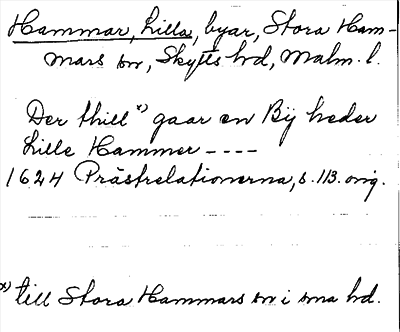 Hammar, Lilla, byar, Stora Ham-
mars sn, Skytts hd, Malm. l.
Der thill x) gaar en Bÿ heder
Lille Hammer ----
1624 Prästrelationerna, s. 113. orig.
x) till Stora Hammars sn i sma hd.